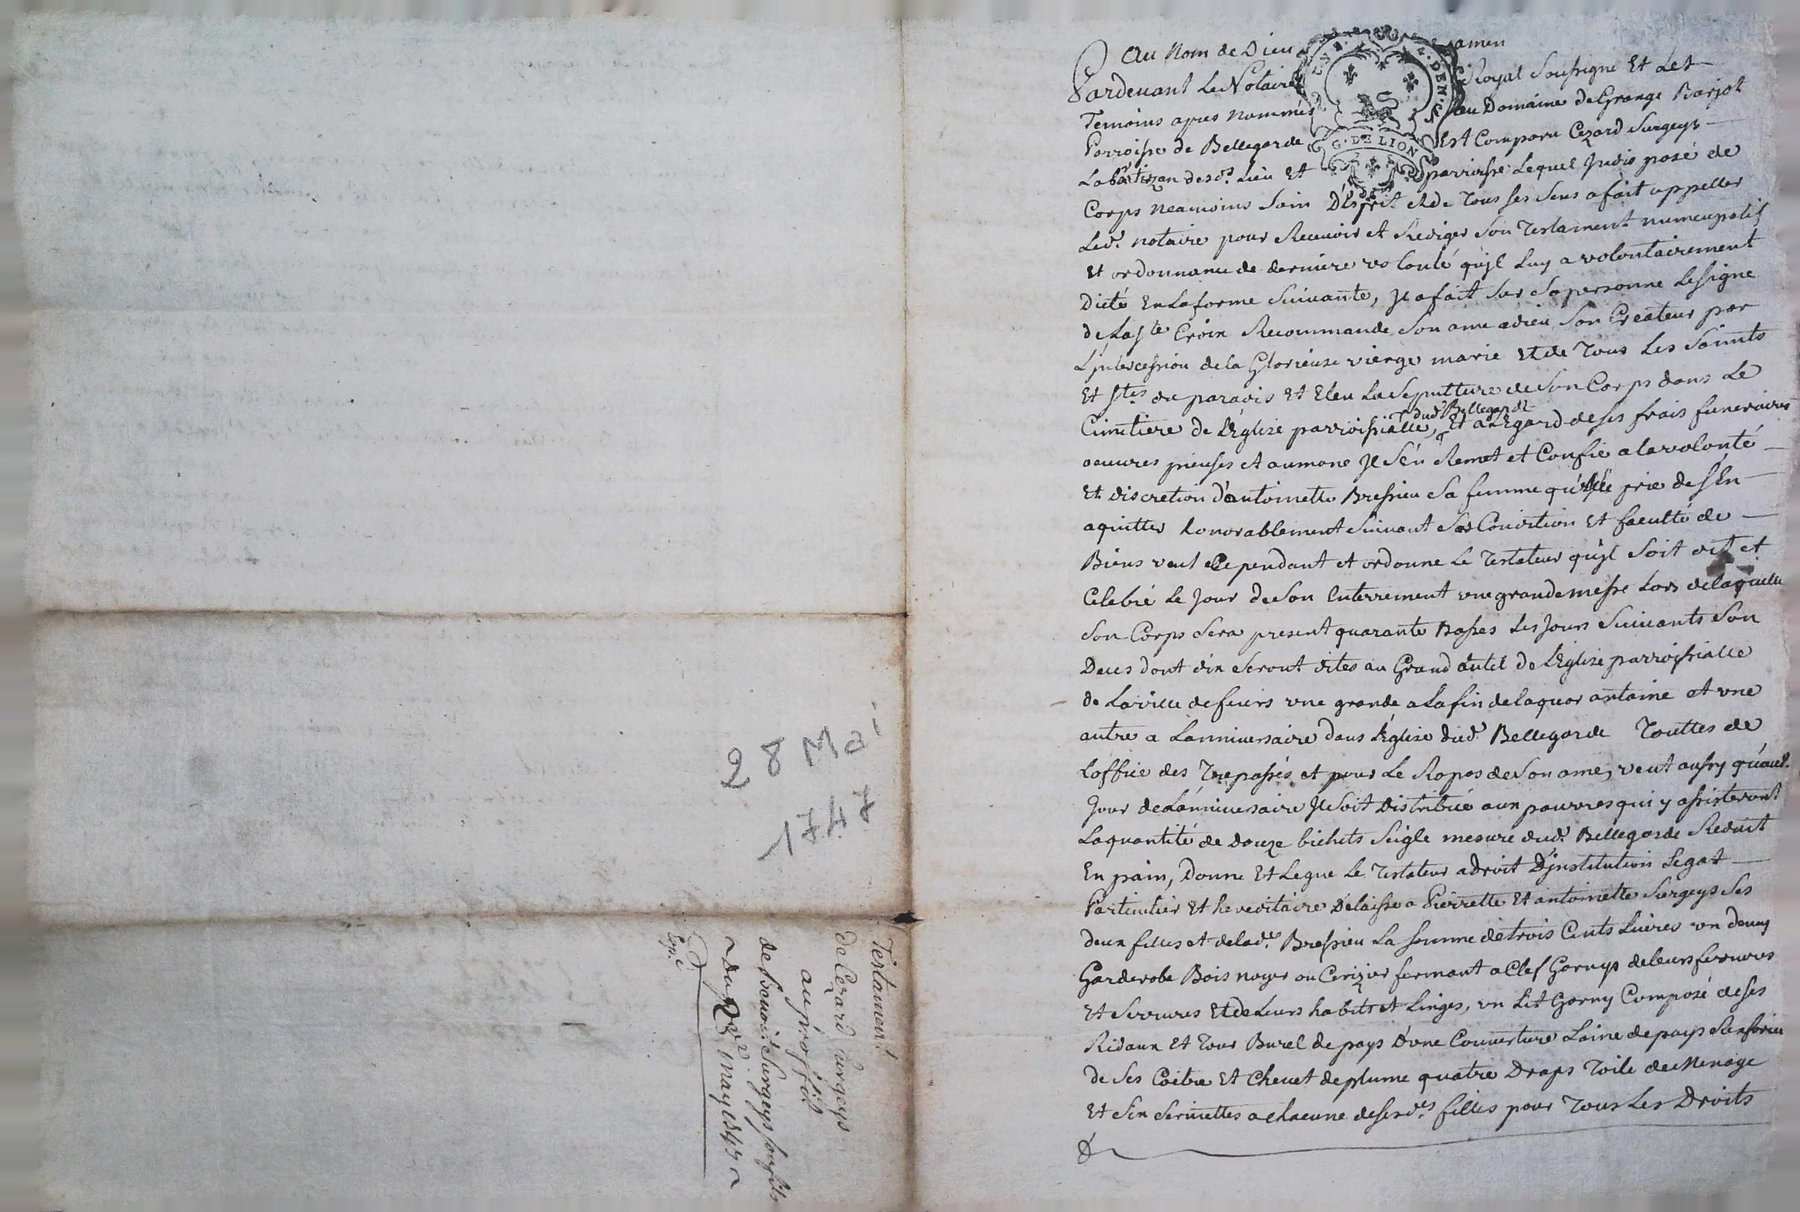 28 Mai
1747
Testament
de Cezard surgeys
au proffit
de Benoist Surgeys son fils
Exp.e
Au Nom de Dieu amen
Pardevant Le Notaire Royal soussigné Et Les
Temoins apres nommés au Domaine de Grange Barjot
Parroisse de Bellegarde Est Comparu Cezard Surgeys
Labitizan desd. Lieu Et parroisse Lequel Indisposé de
Corps neamoins sain D'Esprit et de Tous ses sens a fait appeller
Led. notaire pour Recevoir et Rediger son Testament nuncupatif
Et ordonnance de derniere volonté qu'jl Luy a volontairement
Dicté En La forme suivante, Jl a fait sur sa personne Le signe
de La Ste Croix Recommande son ame a dieu son Createur par
L'jntercession de la Glorieuse vierge marie Et de Tous Les saints
Et stes du paradis Et Eleu La sepulture de son Corps dans Le
Cimetiere de L'Eglise parroissialle dud. Bellegarde, Et a L'Egard de ses frais funeraires
oeuvres pieuses et aumone Jl s'en Remet et Confie a la volonté
Et discretion d'antoinette Bressieu sa femme qu'il prie de s'En
aquitter honorablement suivant sa Condition Et faculté de
Biens veut Cependant et ordonne Le Testateur qu'jl soit dit et
Celebré Le Jour de son Enterrement une grande messe Lors de laquelle
son Corps sera present quarante Basses Les Jours suivants son
Deces dont dix seront dites au Grand autel de L'Eglise parroissialle
de La ville de feurs une grande a La fin de la quarantaine et une
autre a L'anniversaire dans L'Eglise dud. Bellegarde Touttes de
L'office des Trepassés et pour Le Repos de son ame, veut aussy qu'aud.
Jour de L'anniversaire Jl soit Distribué aux pauvres qui y assisteront
La quantité de Douze bichets seigle mesure dud. Bellegarde Reduit
En pain, Donne Et Legue Le Testateur a droit D'jnstitution Legat
Particulier Et hereditaire Delaisse a Pierrette Et antoinette Surgeys ses
deux filles et de lad.e Bressieu La somme de trois Cents Livres un demy
Garderobe Bois noyer ou Cerizier fermant a Clef Garnys de leurs ferrures
Et serrures Et de Leurs habits et Linges, un Lit Garny Composé de ses
Ridaux Et Tour Burel de pays D'une Couverture Laine de pays
de ses Coitre Et Chevet de plume quatre Draps Toile de Menage
Et six serviettes a chacune de sesd.es filles pour Tous Les Droits
G. DE LION